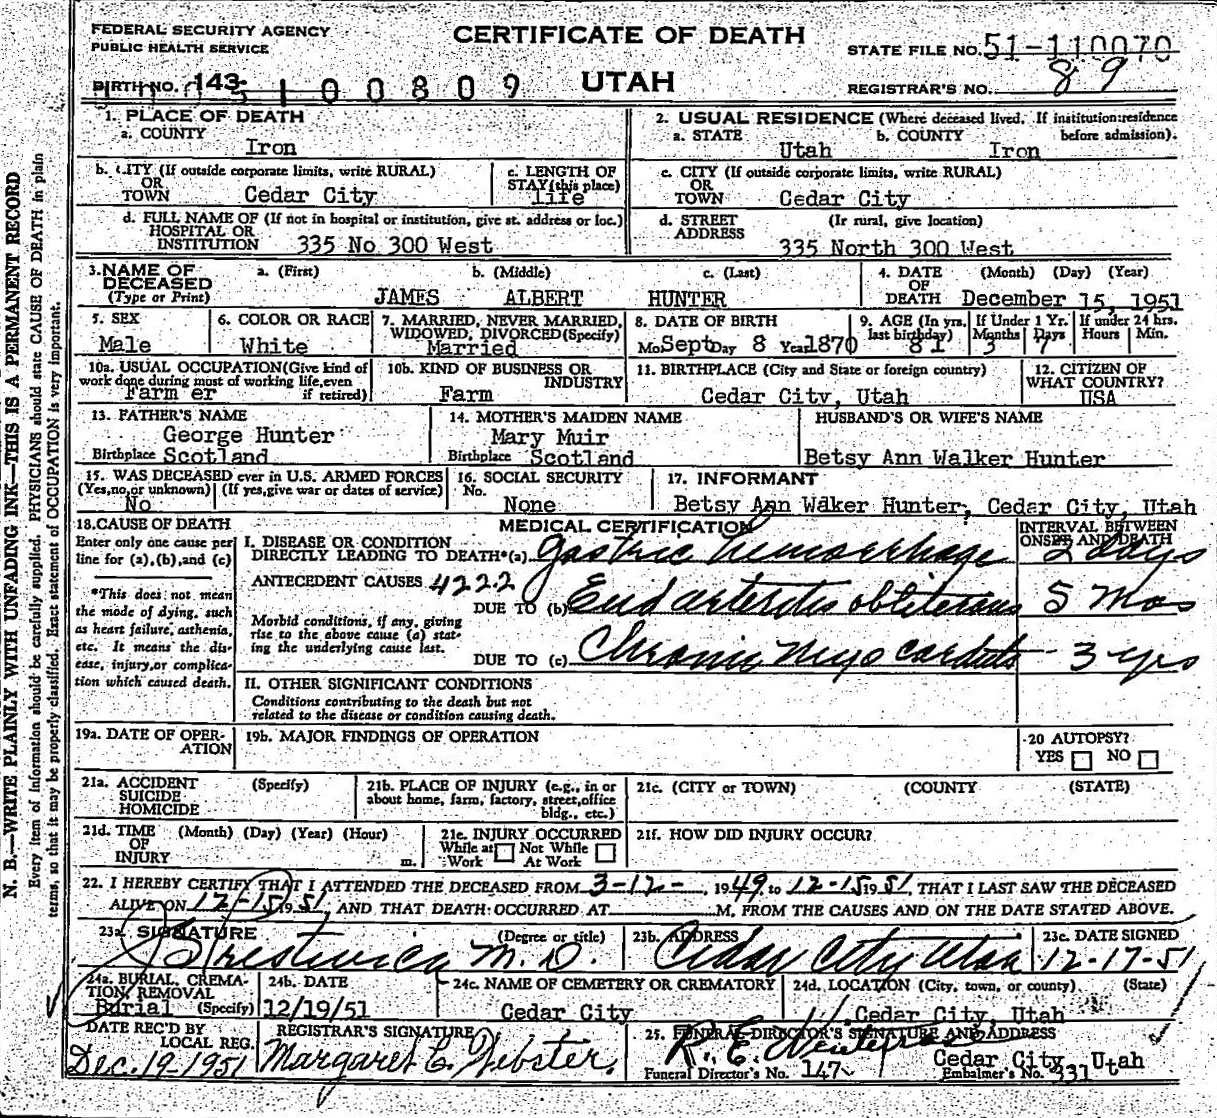 FEDERAL SECURITY AGENCY
PUBLIC HEALTH SERVICE
CERTIFICATE OF DEATH
STATE FILE NO. 51-110070
BIRTH NO. 143 5100809
UTAH
REGISTRAR'S NO. 89
N. B.—WRITE PLAINLY WITH UNFADING INK—THIS IS A PERMANENT RECORD
Every item of information should be carefully supplied. PHYSICIANS should state CAUSE OF DEATH in plain
terms, so that it may be properly classified. Exact statement of OCCUPATION is very important.
1. PLACE OF DEATH
a. COUNTY
Iron
2. USUAL RESIDENCE (Where deceased lived. If institution:residence
a. STATE b. COUNTY before admission).
Utah Iron
b. CITY (If outside corporate limits, write RURAL)
OR
TOWN Cedar City
c. LENGTH OF
STAY (this place)
life
c. CITY (If outside corporate limits, write RURAL)
OR
TOWN Cedar City
d. FULL NAME OF (If not in hospital or institution, give st. address or loc.)
HOSPITAL OR
INSTITUTION 335 No 300 West
d. STREET (Ir rural, give location)
ADDRESS
335 North 300 West
3. NAME OF a. (First) b. (Middle) c. (Last)
DECEASED
(Type or Print) JAMES ALBERT HUNTER
4. DATE (Month) (Day) (Year)
OF
DEATH December 15, 1951
5. SEX
Male
6. COLOR OR RACE
White
7. MARRIED, NEVER MARRIED,
WIDOWED, DIVORCED(Specify)
Married
8. DATE OF BIRTH
Mo Sept Day 8 Year 1870
9. AGE (In yrs.
last birthday)
81
If Under 1 Yr.
Months Days
3 7
If under 24 hrs.
Hours Min.
10a. USUAL OCCUPATION(Give kind of
work done during most of working life,even
if retired)
Farm er
10b. KIND OF BUSINESS OR
INDUSTRY
Farm
11. BIRTHPLACE (City and State or foreign country)
Cedar City, Utah
12. CITIZEN OF
WHAT COUNTRY?
USA
13. FATHER'S NAME
George Hunter
Birthplace Scotland
14. MOTHER'S MAIDEN NAME
Mary Muir
Birthplace Scotland
HUSBAND'S OR WIFE'S NAME
Betsy Ann Walker Hunter
15. WAS DECEASED ever in U.S. ARMED FORCES
(Yes,no,or unknown) (If yes,give war or dates of service)
No
16. SOCIAL SECURITY
No.
None
17. INFORMANT
Betsy Ann Waker Hunter, Cedar City, Utah
18. CAUSE OF DEATH
Enter only one cause per
line for (a),(b),and (c)
*This does not mean
the mode of dying, such
as heart failure, asthenia,
etc. It means the dis-
ease, injury,or complica-
tion which caused death.
MEDICAL CERTIFICATION
INTERVAL BETWEEN
ONSET AND DEATH
I. DISEASE OR CONDITION
DIRECTLY LEADING TO DEATH*(a) Gastric hemorrhage 2 days
ANTECEDENT CAUSES 4222
DUE TO (b) Endarteritis obliterans 5 Mos
Morbid conditions, if any, giving
rise to the above cause (a) stat-
ing the underlying cause last.
DUE TO (c) Chronic Myocarditis - 3 yrs
II. OTHER SIGNIFICANT CONDITIONS
Conditions contributing to the death but not
related to the disease or condition causing death.
19a. DATE OF OPER-
ATION
19b. MAJOR FINDINGS OF OPERATION
20 AUTOPSY?
YES NO
21a. ACCIDENT (Specify)
SUICIDE
HOMICIDE
21b. PLACE OF INJURY (e.g., in or
about home, farm, factory, street,office
bldg., etc.)
21c. (CITY or TOWN) (COUNTY) (STATE)
21d. TIME (Month) (Day) (Year) (Hour)
OF
INJURY m.
21e. INJURY OCCURRED
While at Not While
Work At Work
21f. HOW DID INJURY OCCUR?
22. I HEREBY CERTIFY THAT I ATTENDED THE DECEASED FROM 3-12-, 1949 to 12-15 1951, THAT I LAST SAW THE DECEASED
ALIVE ON 12-15 1951, AND THAT DEATH OCCURRED AT M. FROM THE CAUSES AND ON THE DATE STATED ABOVE.
23a. SIGNATURE (Degree or title)
Prestwich M. D.
23b. ADDRESS
Cedar City Utah
23c. DATE SIGNED
12-17-51
24a. BURIAL, CREMA-
TION, REMOVAL
Burial (Specify)
24b. DATE
12/19/51
24c. NAME OF CEMETERY OR CREMATORY
Cedar City
24d. LOCATION (City, town, or county) (State)
Cedar City, Utah
DATE REC'D BY
LOCAL REG.
Dec. 19-1951
REGISTRAR'S SIGNATURE
Margaret C. Webster.
25. FUNERAL DIRECTOR'S SIGNATURE AND ADDRESS
R. E.
Cedar City, Utah
Funeral Director's No. 147
Embalmer's No. 331